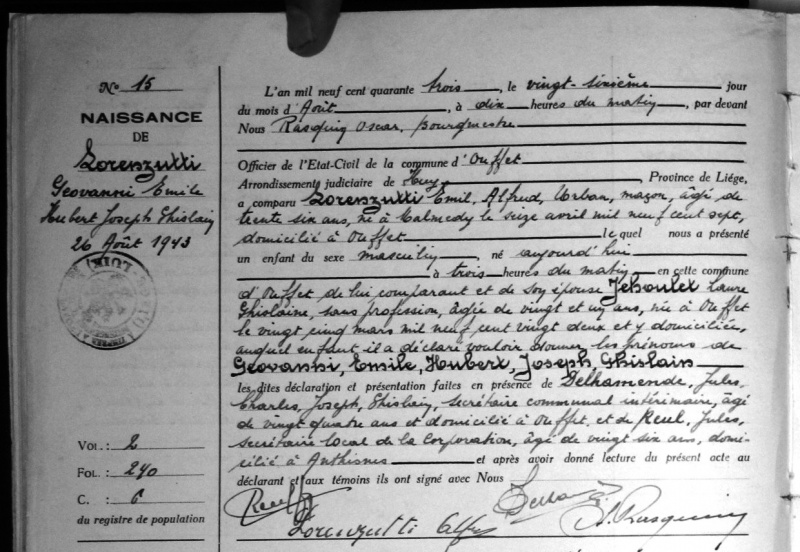 No 15
NAISSANCE
DE
Lorenzutti
Geovanni Emile
Hubert Joseph Ghislain
26 Août 1943
VOL: 2
FOL: 240
C. : 6
du registre de population
L'an mil neuf cent quarante trois, le vingt-sixième jour
du mois d'Août, à dix heures du matin, par devant
Nous Rasquin Oscar, Bourgmestre
Officier de l'Etat-Civil de la commune d'Ouffet
Arrondissement judiciaire de Huy, Province de Liége,
a comparu Lorenzutti Emil, Alfred, Urban, maçon, âgé de
trente six ans, né à Malmedy le seize avril mil neuf cent sept,
domicilié à Ouffet lequel nous a présenté
un enfant du sexe masculin, né aujourd'hui
à trois heures du matin en cette commune
d'Ouffet de lui comparant et de son épouse Jehoulet Laure
Ghislaine, sans profession, âgée de vingt et un ans, née à Ouffet
le vingt cinq mars mil neuf cent vingt deux et y domiciliée,
auquel enfant il a déclaré vouloir donner les prénoms de
Geovanni, Emile, Hubert, Joseph Ghislain
les dites déclaration et présentation faites en présence de Delhamende, Jules,
Charles, Joseph, Ghislain, secrétaire communal intérimaire, âgé
de vingt quatre ans et domicilié à Ouffet, et de Reul, Jules,
secrétaire local de la Corporation, âgé de vingt six ans, domi-
cilié à Anthisnes et après avoir donné lecture du présent acte au
déclarant et aux témoins ils ont signé avec Nous
Reul
Lorenzutti Alf
Rasquin